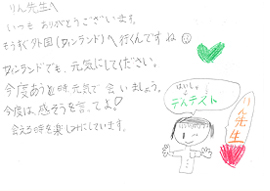 りん先生へ
いつもありがとうございます。
もうすぐ外国(フィンランド)へ行くんですね
フィンランドでも、元気にしてください。
今度あう時元気で会いましょう。
今度は、感そうを言ってよ!
会える時を楽しみにしています。
はいしゃ
テストテスト
りん先生